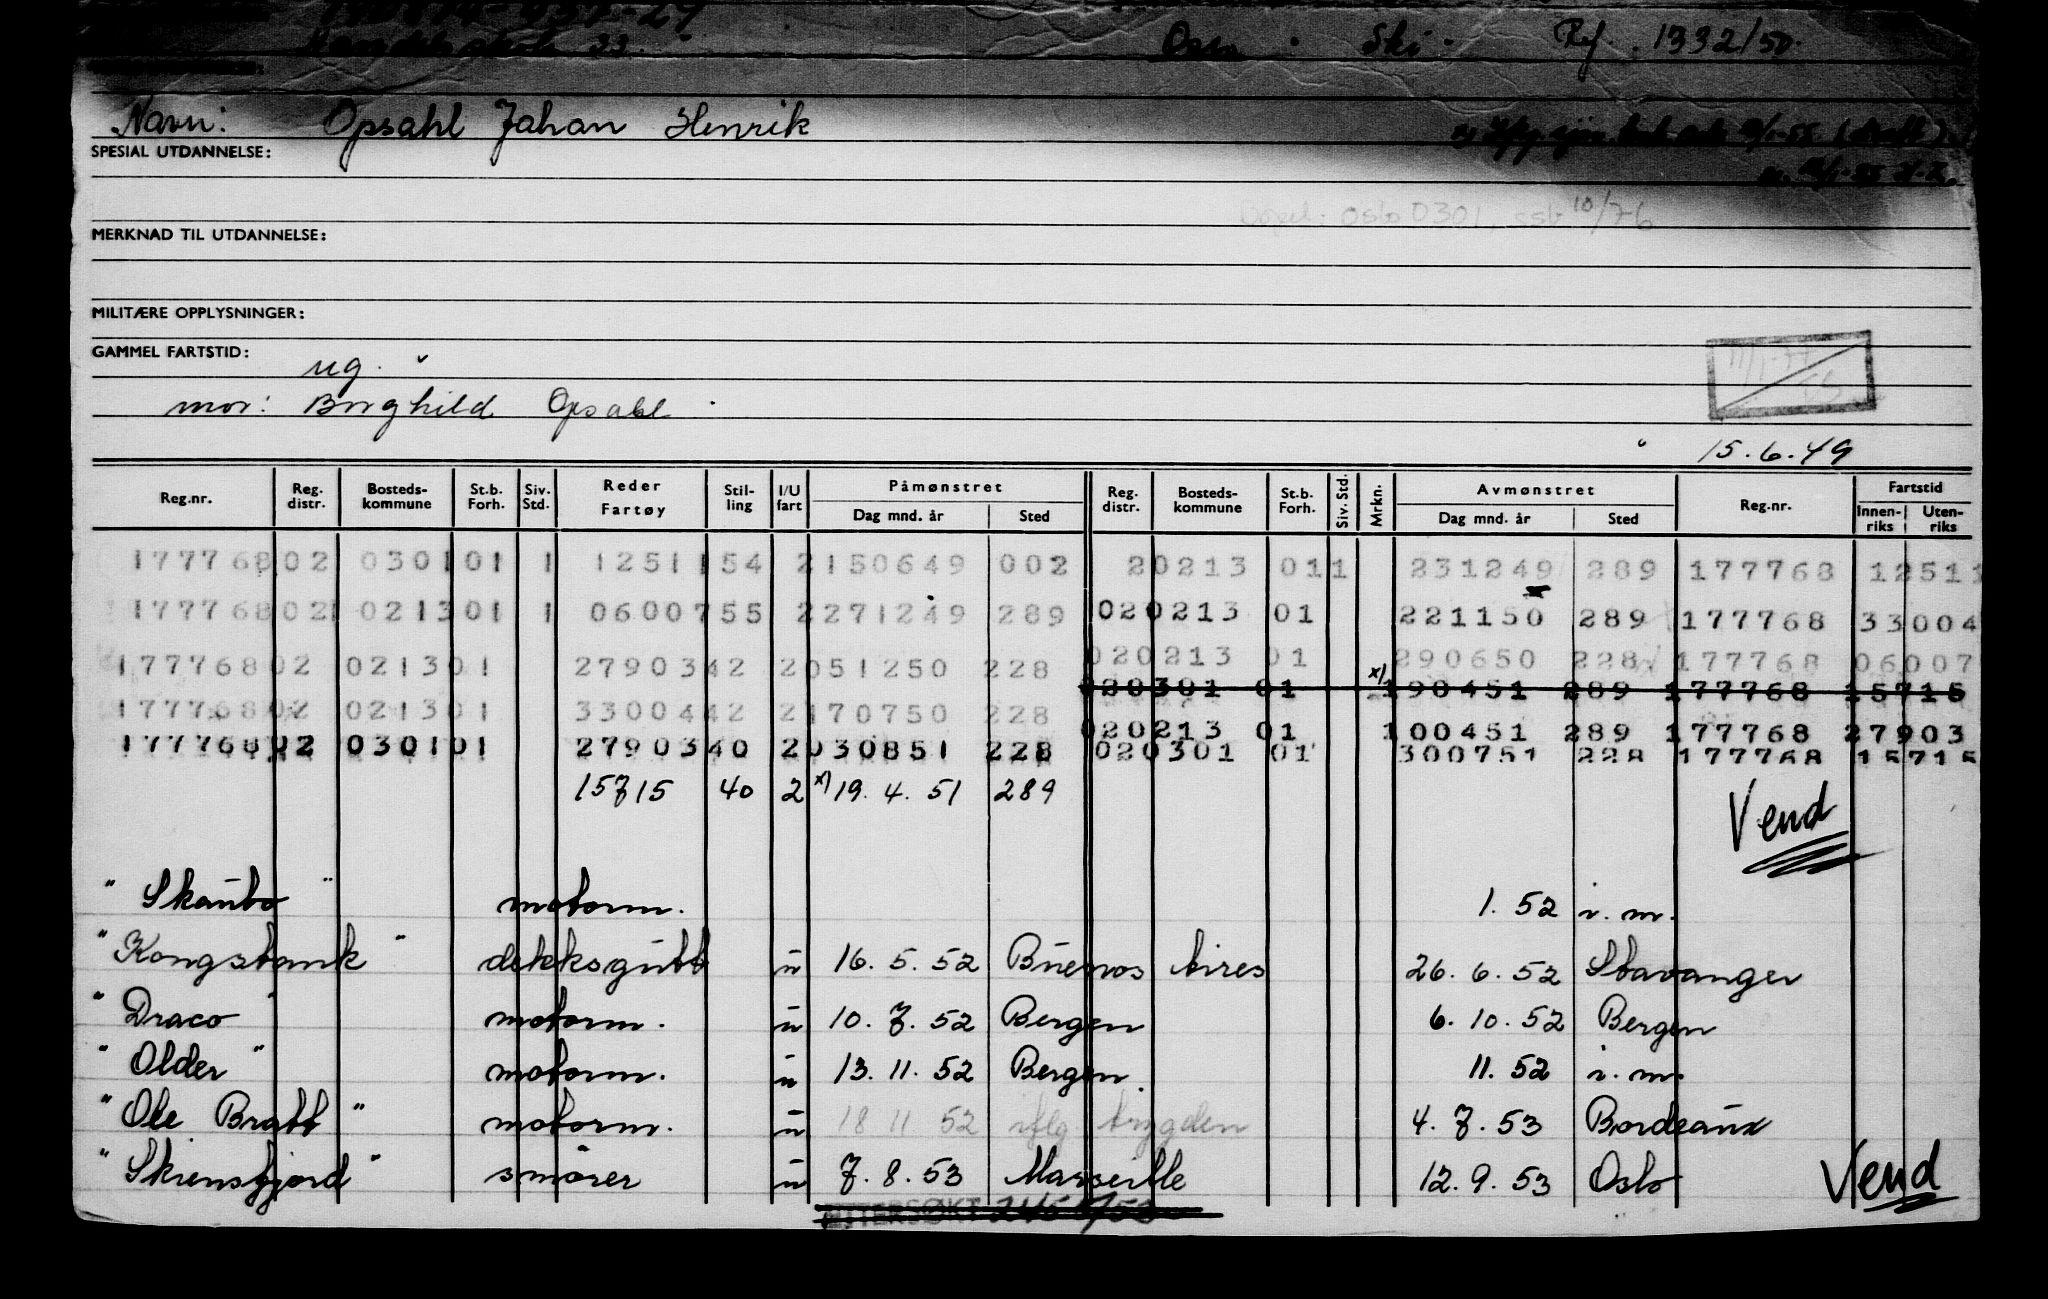 Oslo . Ski . Ref. 1332/50.
Navn: Opsahl Johan Henrik
SPESIAL UTDANNELSE:
Oslo 0301, ssb 10/76
MERKNAD TIL UTDANNELSE:
MILITÆRE OPPLYSNINGER:
GAMMEL FARTSTID:
ug. "
mor: Borghild Opsahl .
" 15.6.49
Reg.nr. Reg. distr. Bosteds- kommune St.b. Forh. Siv. Std. Reder Fartøy Stil- ling I/U fart Påmønstret Dag mnd. år Sted Reg. distr. Bosteds- kommune St.b. Forh. Siv. Std. Mrkn. Avmønstret Dag mnd. år Sted Reg.nr. Fartstid Innen- riks Uten- riks
177768 02 0301 01 1 12511 54 2 150649 002 20213 011 231249 289 177768 12511
177768 02 0213 01 1 06007 55 2 271249 289 020213 01 221150 289 177768 33004
177768 02 0213 01 27903 42 2 051250 228 020213 01 290650 228 177768 06007
020301 01 x) 190451 289 177768 15715
177768 02 0213 01 33004 42 2 170750 228
020213 01 100451 289 177768 27903
177768 02 0301 01 27903 40 2 030851 228 020301 01 300751 228 177768 15715
15715 40 2 x) 19.4.51 289
Vend
"Skaubo" motorm. 1.52 i.m.
"Kongsbank" dekksgutt u 16.5.52 Buenos Aires 26.6.52 Stavanger
"Draco" motorm. u 10.7.52 Bergen 6.10.52 Bergen
"Older" motorm. u 13.11.52 Bergen. 11.52 i.m.
"Ole Bratt" motorm. u 18 11 52 iflg trygden 4.7.53 Bordeaux
"Skiensfjord" smører u 7.8.53 Marseille 12.9.53 Oslo
Vend
ETTERSØKT